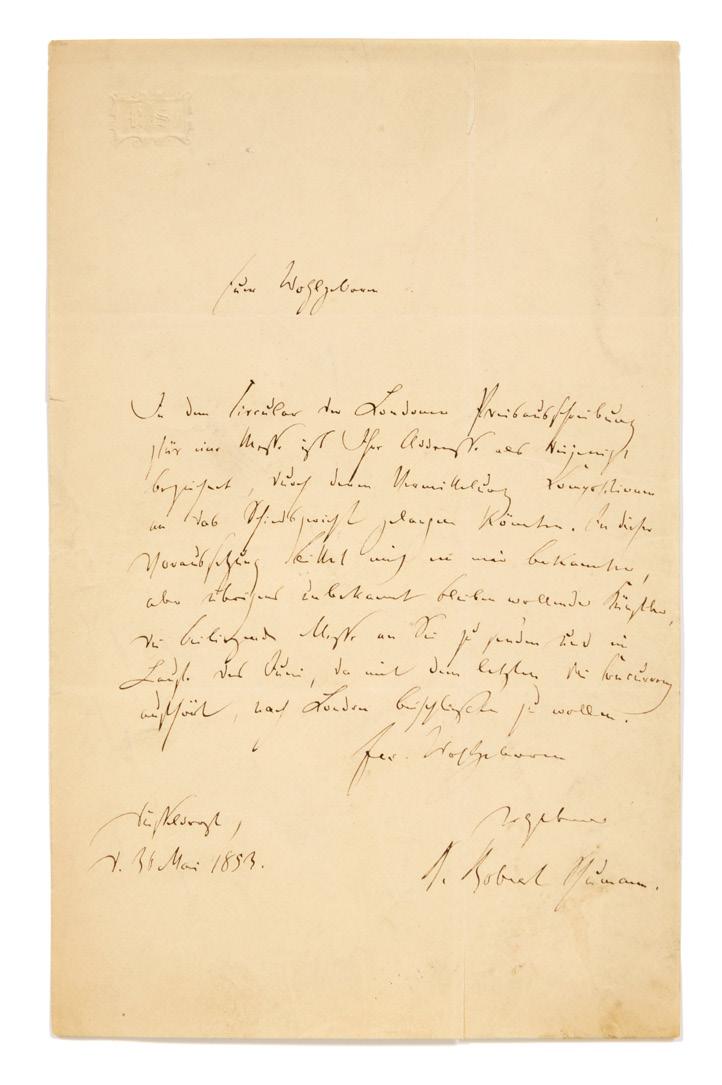 Euer Wohlgeboren
In dem Circular der Londoner Preisausschreibung
für eine Messe ist Ihre Addresse als diejenige
bezeichnet, durch deren Vermittelung Compositionen
an das Schiedsgericht gelangen könnten. In dieser
Voraussetzung bittet mich ein mir bekannter,
aber übrigens unbekannt bleiben wollender Künstler,
die beiliegende Messe an Sie zu senden und im
Laufe des Juni, da mit dem letzten die Concurrenz
aufhört, nach London beischließen zu wollen.
Ew. Wohlgeboren
Düsseldorf,
ergebener
d. Mai 1853.
Dr. Robert Schumann.